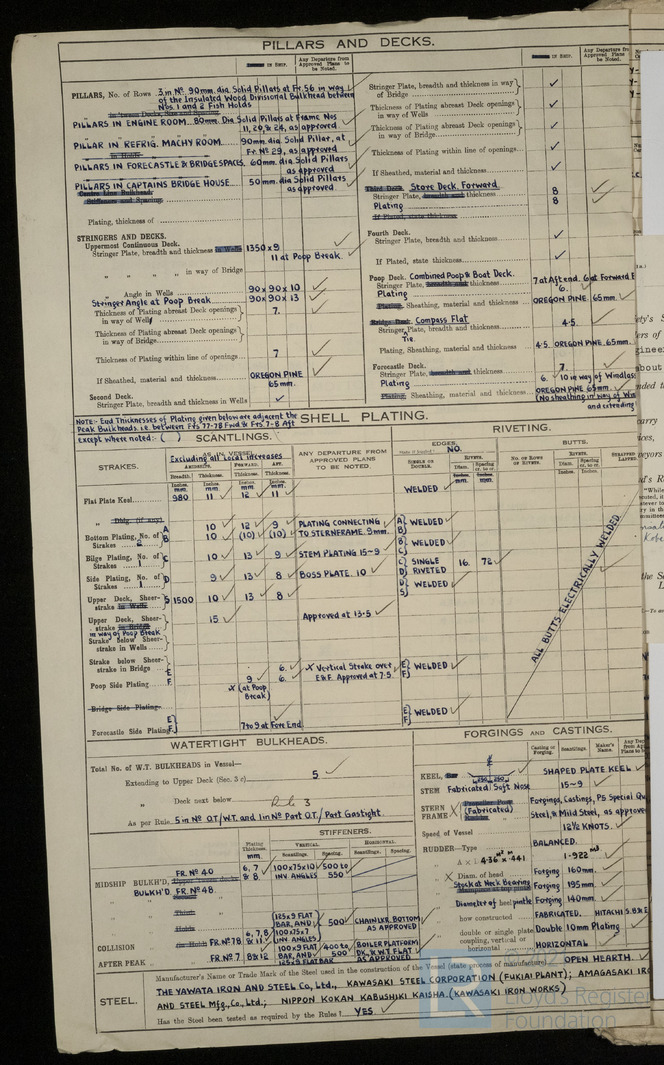 PILLARS AND DECKS.
Any Departure from Approved Plans to be Noted.
PILLARS, No. of Rows 3 in Nº 90mm. dia Solid Pillars at Fr. 56 in way
of the Insulated Wood Divisional Bulkhead between
Nos. 1 and 2 Fish Holds
PILLARS IN ENGINE ROOM. 80mm. Dia Solid Pillars at Frame Nos
11, 20, & 24, as approved
PILLAR IN REFRIG. MACHY ROOM. 90mm. dia Solid Pillar, at
Fr. Nº 29, as approved
PILLARS IN FORECASTLE & BRIDGE SPACES. 60mm. dia Solid Pillars
as approved
PILLARS IN CAPTAINS BRIDGE HOUSE. 50mm. dia Solid Pillars
as approved
Plating, thickness of
STRINGERS AND DECKS.
Uppermost Continuous Deck.
Stringer Plate, breadth and thickness in Wells 1350 x 9
" " " " in way of Bridge 11 at Poop Break
" Angle in Wells 90 x 90 x 10
Stringer Angle at Poop Break 90 x 90 x 13
Thickness of Plating abreast Deck openings in way of Wells 7.
Thickness of Plating abreast Deck openings in way of Bridge
Thickness of Plating within line of openings 7
If Sheathed, material and thickness OREGON PINE 65mm.
Second Deck.
Stringer Plate, breadth and thickness in Wells
Stringer Plate, breadth and thickness in way of Bridge
Thickness of Plating abreast Deck openings in way of Wells
Thickness of Plating abreast Deck openings in way of Bridge
Thickness of Plating within line of openings
If Sheathed, material and thickness
Third Deck. Store Deck. Forward
Stringer Plate, breadth and thickness 8
Plating 8
If Plated, state thickness
Fourth Deck.
Stringer Plate, breadth and thickness
If Plated, state thickness
Poop Deck. Combined Poop & Boat Deck.
Stringer Plate, breadth and thickness 7 at Aft end. 6 at Forward E
Plating 6.
Plating, Sheathing, material and thickness OREGON PINE. 65mm.
Bridge Deck. Compass Flat
Stringer Plate, breadth and thickness 4·5
Tie.
Plating, Sheathing, material and thickness 4·5. OREGON PINE. 65mm.
Forecastle Deck.
Stringer Plate, breadth and thickness 7.
Plating 6. 10 in way of Windlass
Plating, Sheathing, material and thickness OREGON PINE 65mm
(No sheathing in way of Win
and extending
NOTE:- End Thicknesses of Plating given below are adjacent the
Peak Bulkheads. i.e. between Frs 77-78 Fwd & Frs 7-8 Aft
except where noted:- ( )
SHELL PLATING.
SCANTLINGS.
RIVETING.
STRAKES.
AS IN VESSEL
Excluding all Local increases
AMIDSHIPS. FORWARD. AFT.
Breadth. Thickness. Thickness. Thickness.
ANY DEPARTURE FROM APPROVED PLANS TO BE NOTED.
EDGES. NO.
SINGLE OR DOUBLE.
RIVETS.
Diam. Spacing cr. to cr.
BUTTS.
NO. OF ROWS OF RIVETS.
RIVETS.
Diam. Spacing cr. to cr.
Flat Plate Keel 980 11 12 11 WELDED
" Dblg. (if any)
Bottom Plating, No. of Strakes 2 A 10 12 9 PLATING CONNECTING A} WELDED
B 10 (10) (10) TO STERNFRAME. 9mm. B}
Bilge Plating, No. of Strakes 1 C 10 13 9 STEM PLATING 15~9 B} WELDED C}
Side Plating, No. of Strakes 1 D 9 13 8 BOSS PLATE. 10 C} SINGLE D} RIVETED 16. 72
Upper Deck, Sheer-strake in Wells S 1500 10 13 8 D} WELDED S}
Upper Deck, Sheer-strake in Bridge in way of Poop Break 15 Approved at 13·5
Strake below Sheer-strake in Wells
Strake below Sheer-strake in Bridge
Poop Side Plating E 6. X Vertical Stroke over E} WELDED
F. 9 6. E & F. Approved at 7·5. F}
X (at Poop Break)
Bridge Side Plating
Forecastle Side Plating E} F.} 7 to 9 at Fore End. E} WELDED F}
ALL BUTTS ELECTRICALLY WELDED
WATERTIGHT BULKHEADS.
Total No. of W.T. BULKHEADS in Vessel—
Extending to Upper Deck (Sec. 3 c) 5
" Deck next below
As per Rule 5 in Nº O.T/W.T. and 1 in Nº Part O.T/Part Gastight.
STIFFENERS.
Plating Thickness. mm
VERTICAL. HORIZONTAL.
Scantlings. Spacing. Scantlings. Spacing.
MIDSHIP BULKH'D, FR. Nº 40 6, 7 & 8 100x75x10 INV. ANGLES 500 to 550
BULKH'D. FR. Nº 48.
COLLISION FR. Nº 78 6, 7, 8 & 11 125x9 FLAT BAR, AND 100x75x7 INV. ANGLES 500 CHAIN LKR. BOTTOM AS APPROVED
AFTER PEAK FR. Nº 7. 8 & 12 100x9 FLAT BAR, AND 125x9 FLAT BAR 400 to 500 BOILER PLATFORM DK. & W.T. FLAT AS APPROVED
FORGINGS AND CASTINGS.
Casting or Forging. Scantlings. Maker's Name.
KEEL, Bar SHAPED PLATE KEEL
STEM Fabricated: Soft Nose 15~9
STERN FRAME Propeller Post (Fabricated) Forgings, Castings, P5 Special Qu
Steel, & Mild Steel, as approve
Speed of Vessel 12½ KNOTS.
RUDDER—Type BALANCED.
A x 1 4·36 x ·441 1·922
" Diam. of head Forging 160mm.
Stock at Neck Bearing Forging 195mm.
Diameter of heel pintle Forging 140mm.
how constructed FABRICATED. HITACHI S.B & E
double or single plate Double 10mm Plating
coupling, vertical or horizontal HORIZONTAL
STEEL.
Manufacturer's Name or Trade Mark of the Steel used in the construction of the Vessel (state process of manufacture) OPEN HEARTH.
THE YAWATA IRON AND STEEL Co, Ltd., KAWASAKI STEEL CORPORATION (FUKIAI PLANT); AMAGASAKI IRO
AND STEEL Mfg., Co., Ltd.; NIPPON KOKAN KABUSHIKI KAISHA. (KAWASAKI IRON WORKS)
Has the Steel been tested as required by the Rules? YES.
Lloyd's Register
Foundation